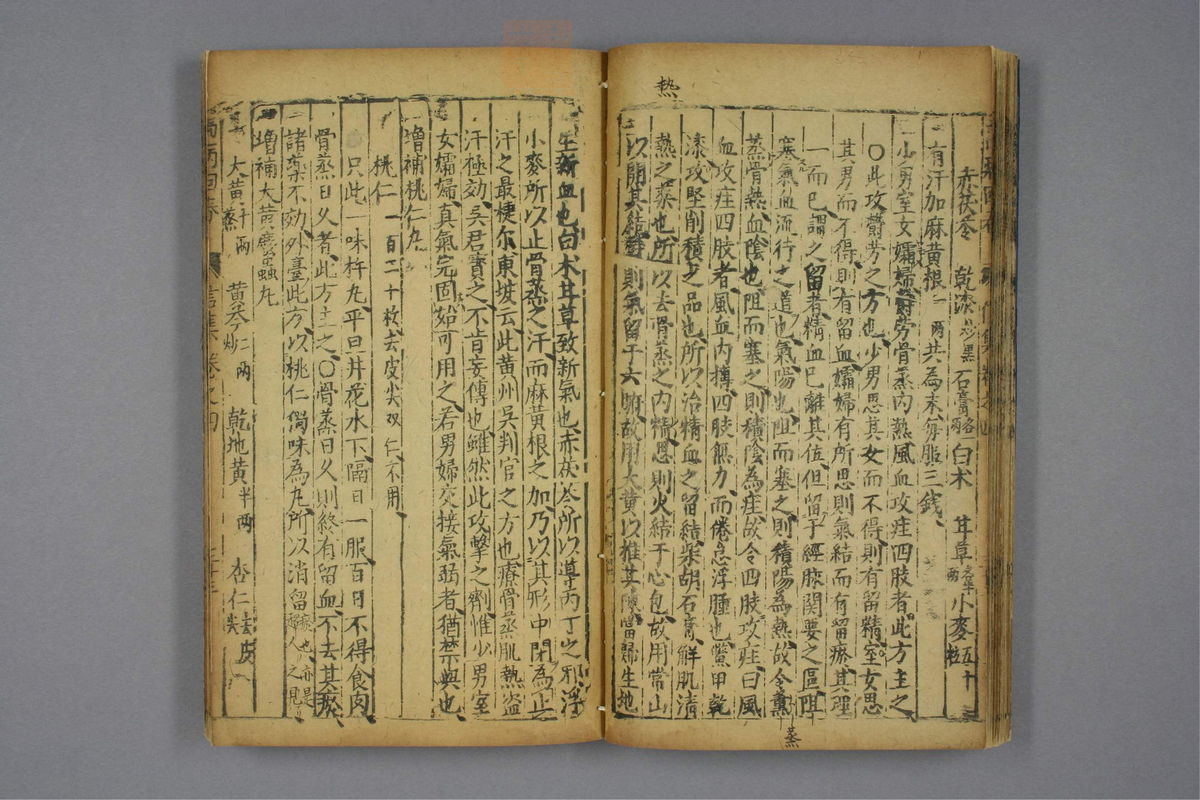 赤茯苓 乾漆炒黑 石膏 白术 甘草 小麥五十粒
一有汗加麻黃根一兩共為末每服三錢
一少男室女孀婦骨蒸內熱風血攻疰四肢者此方主之
○此攻之方也少男思其女而不得則有留精室女思
其男而不得則有留血孀婦有所思則氣結而有留瘀其理
一而已謂之留者精血已離其位但留于經關要之區阻
塞氣血流行之道也氣陽也阻而塞之則積陽為熱故令薰
蒸骨熱血陰也阻而塞之則積陰為疰故令四肢攻疰曰風
血攻疰四肢者風血內搏四肢無力而倦怠浮腫也鱉甲乾
漆攻堅削積之品也所以治精血之留結柴胡石膏解肌清
熱之藥也所以去骨蒸之內則火結于心包故用常山
以開其結則氣留于六腑故用大黃以推其歸生地
熱
蒸
生新血也白术甘草致新氣也赤茯苓所以導丙丁之邪浮
小麥所以止骨蒸之汗而麻黃根之加乃以其形中閉為止
汗之最梗尔東坡云此黃州吳判官之方也療骨蒸肌熱盜
汗極効吳君寶之不肯妄傳也雖然此攻擊之劑惟少男室
女孀婦真氣完固如可用之若男婦交接氣弱者猶禁與也
一增補桃仁丸
桃仁一百二十枚去皮尖双仁不用
只此一味杵丸平旦井花水下隔日一服百日不得食肉
骨蒸日久者此方主之○骨蒸日久則終有留血不去其瘀
諸藥不効外臺此方以桃仁獨味為丸所以消留瘀也亦是人之見
一增補大黃䗪蟲丸
大黃蒸十兩 黃芩二兩炒 乾地黃半兩 杏仁去皮尖
萬病回春 信集卷之四